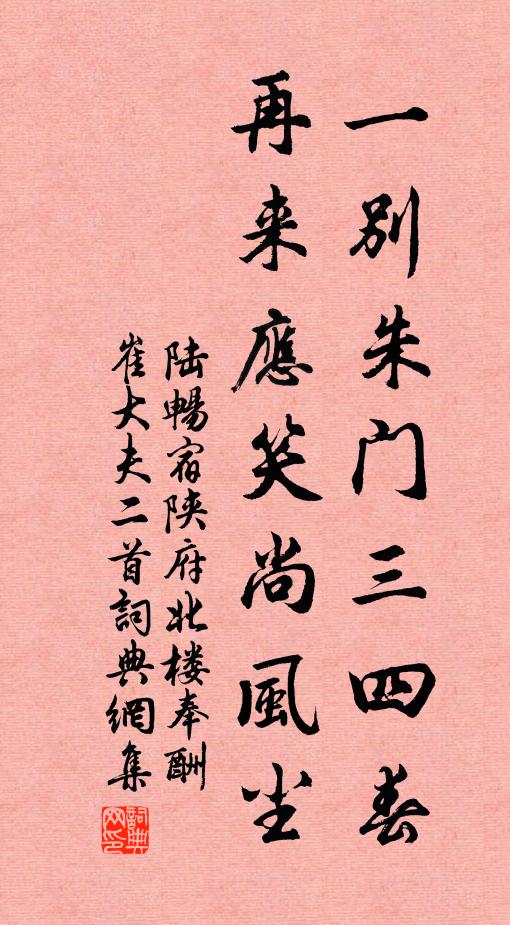 一别朱门三四春
再来應笑尚風尘
陆暢宿陕府北楼奉酬
崔大夫二首詞典網集
詞典
网印